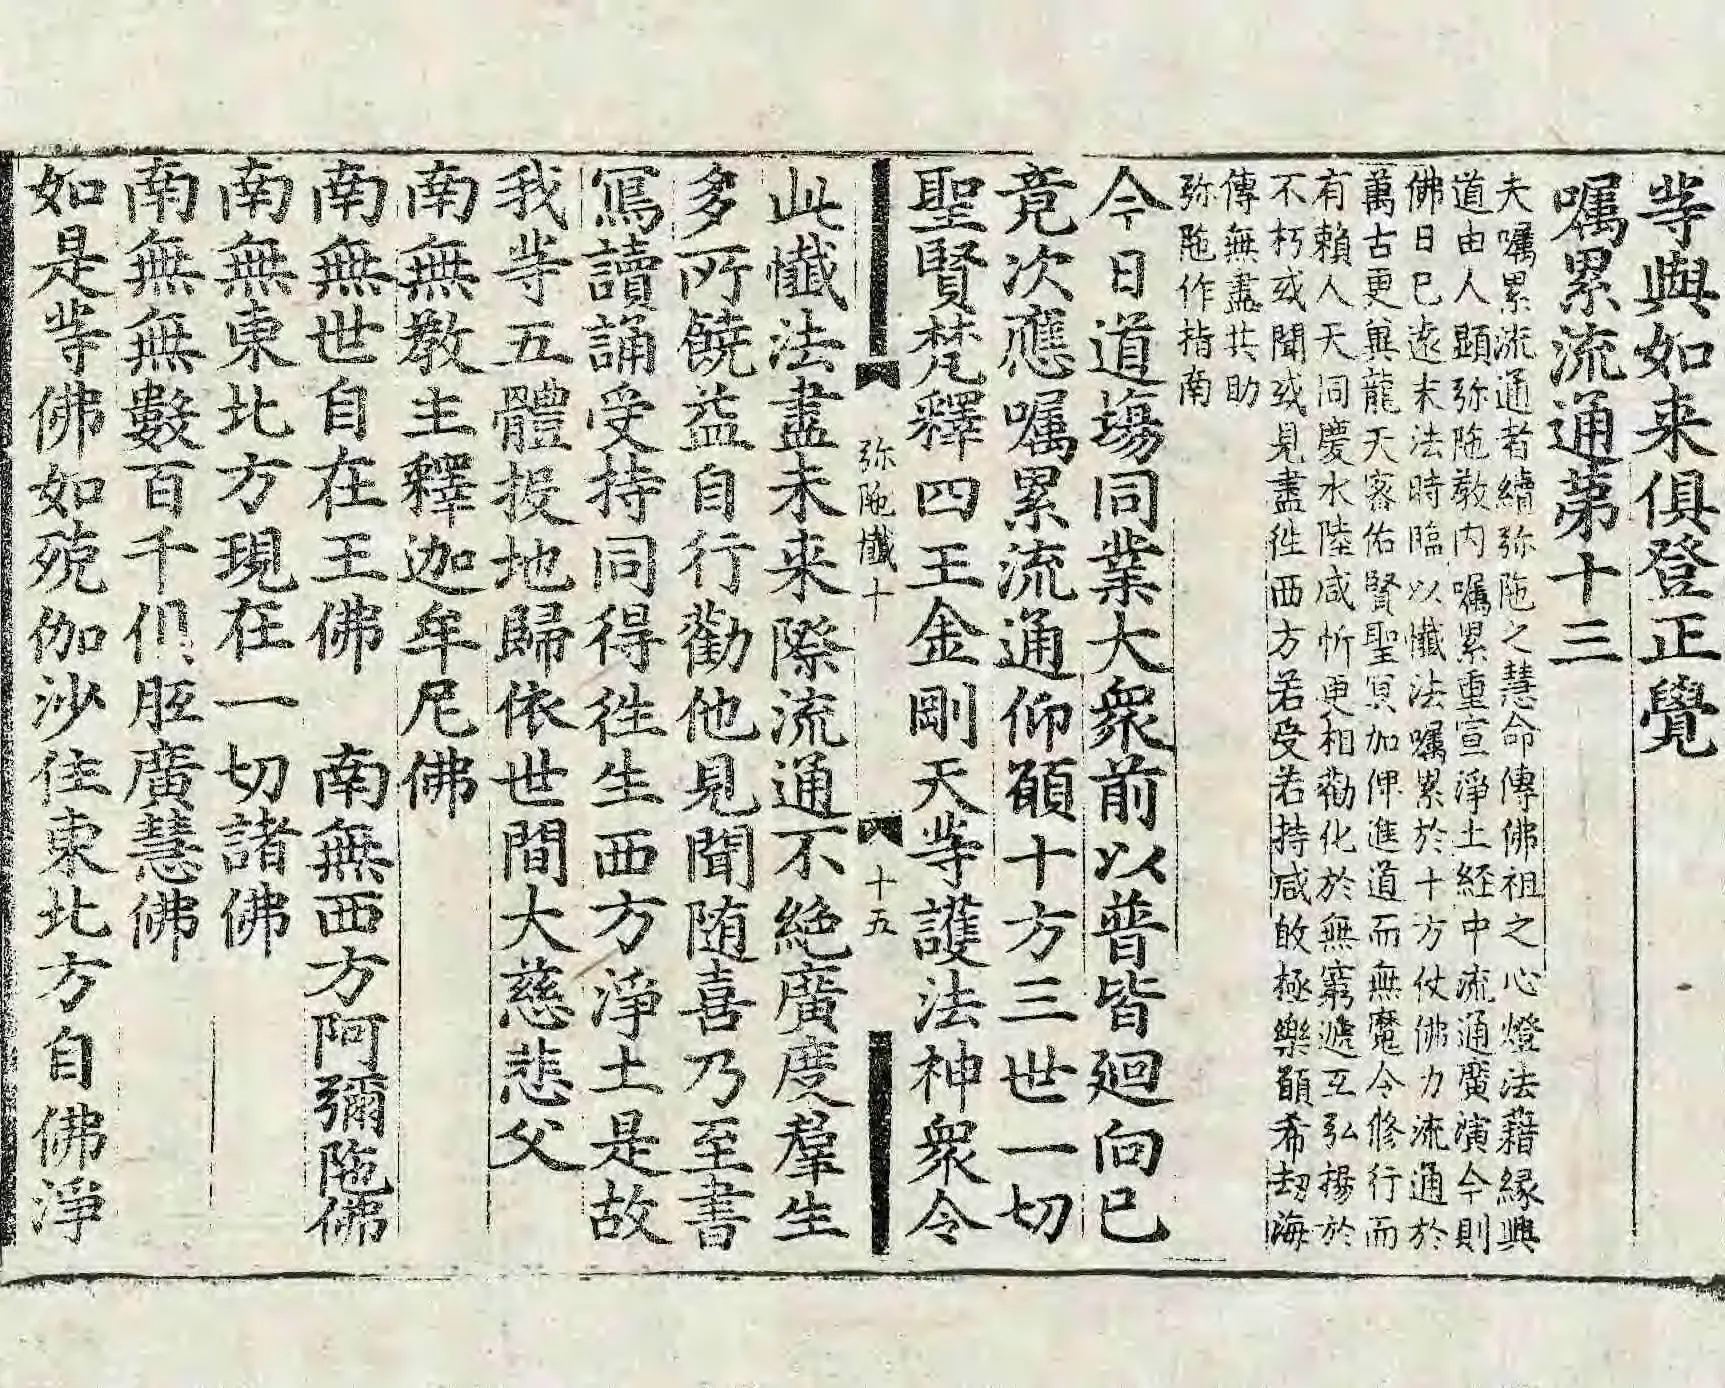 等與如来俱登正覺
囑累流通第十三
夫囑累流通者續弥陁之慧命傳佛祖之心燈法藉緣興
道由人顯弥陁教内囑累重宣淨土經中流通廣演今則
佛日已遠末法時臨以懺法囑累於十方仗佛力流通於
萬古更兾龍天密佑賢聖冥加俾進道而無魔令修行而
有賴人天同慶水陸咸忻更相勸化於無窮遞互弘揚於
不朽或聞或見盡徃西方若受若持咸敀極樂願希刼海
傳無盡共助
弥陁作指南
今日道塲同業大衆前以普皆廻向已
竟次應囑累流通仰願十方三世一切
聖賢梵釋四王金剛天等護法神衆令
弥陁懺十 十五
此懺法盡未来際流通不絶廣度羣生
多所饒益自行勸他見聞随喜乃至書
寫讀誦受持同得徃生西方淨土是故
我等五體投地歸依世間大慈悲父
南無教主釋迦牟尼佛
南無世自在王佛 南無西方阿彌陁佛
南無東北方現在一切諸佛
南無無數百千俱胝廣慧佛
如是等佛如殑伽沙住東北方自佛淨